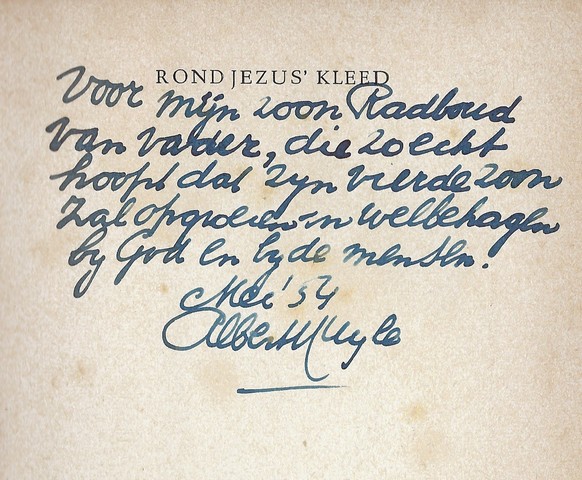 ROND JEZUS' KLEED
Voor mijn zoon Radboud
van vader, die zo echt
hoopt dat zijn vierde zoon
zal opgroeien in welbehagen
bij God en bij de mensen.
Mei '54
Albert Kuyle